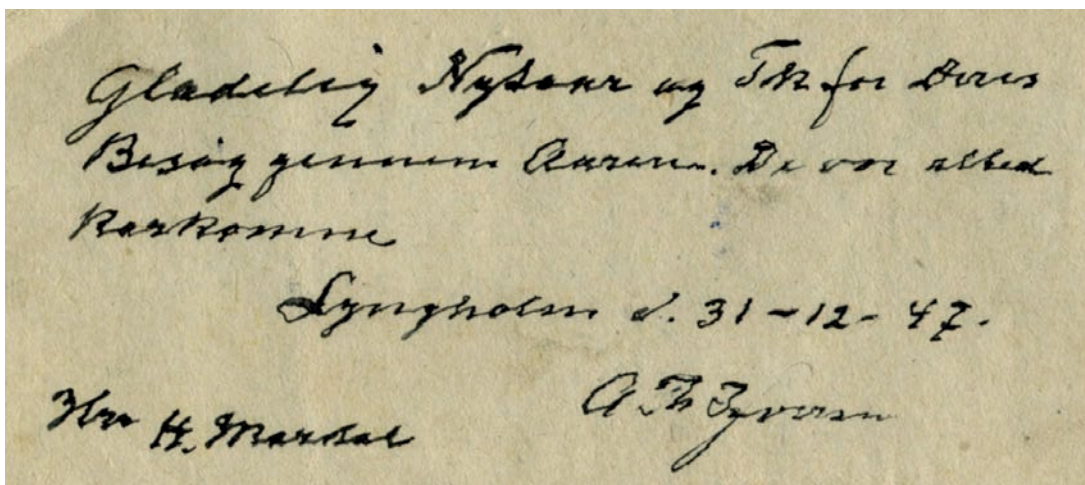 Glædelig Nytaar og Tak for Deres
Besøg gennem Aaren. De var altid
kærkomne
Lyngholm d. 31-12-47.
A Th Iversen
Hrr H. Mardal